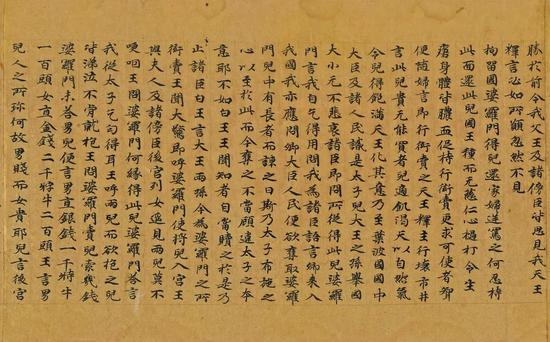 勝於前令我父王及諸傍臣皆思見我天王
釋言必如所願忽然不見
拘留國婆羅門得兒還家婦逆罵之何忍持
此面還此兒國王種而无慈仁心撾打令生
瘡身體皆膿血促持行衒賣更求可使者聟
便隨婦言即行衒賣之天王釋主行壞市井
言此兒貴无能買者兒適飢渴天以自然氣
令兒得飽滿天王化其意乃至葉波國國中
大臣及諸人民識是太子兒大王之孫舉國
大小无不悲哀諸臣即問所從得此兒婆羅
門言我自乞得用問我為諸臣語言卿來入
我國我亦應問卿大臣人民便欲奪取婆羅
門兒中有長者而諫之曰斯乃太子布施之
心以至於此而今奪之不當顧違太子之本
意耶不如白王王聞知者自當贖之於是乃
止諸臣白王言大王兩孫今為婆羅門之所
衒賣王聞大驚即呼婆羅門使將兒入宮王
與夫人及諸傍臣後宮婇女遥見兩兒莫不
哽咽王問婆羅門何緣得此兒婆羅門答言
我從太子乞匃得耳王呼兩兒而欲抱之兒
皆涕泣不肯就抱王問婆羅門賣兒索幾錢
婆羅門未答男兒便言男直銀錢一千特牛
一百頭女直金錢二千牸牛二百頭王言男
兒人之所珎何故男賤而女貴耶兒言後宮